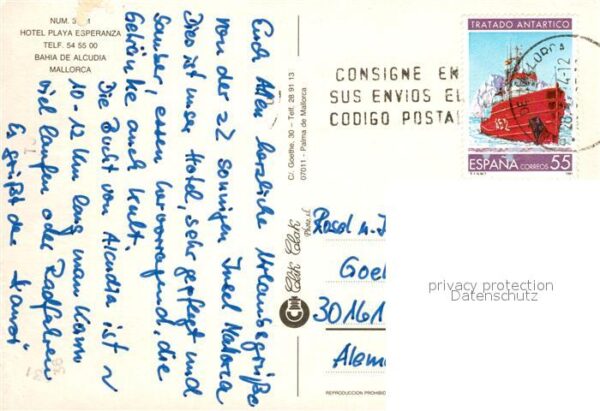 NUM.
HOTEL PLAYA ESPERANZA
TELF. 54 55 00
BAHIA DE ALCUDIA
MALLORCA
Euch Allen herzliche Urlaubsgrüße
von der zz sonnigen Insel Mallorca
Dies ist unser Hotel, sehr gepflegt und
sauber, essen hervorragend, die
Getränke auch kult.
Die Bucht von Alcudia ist ~
10 - 12 Km lang, man kann
viel laufen oder Radfahren
Es grüßt der
C/. Goethe, 30 – Telf. 28 91 13
07011 - Palma de Mallorca
Clik Clak
REPRODUCCION PROHIBID
CONSIGNE EN
SUS ENVIOS EL
CODIGO POSTAL
TRATADO ANTARTICO
ESPAÑA CORREOS 55
Goet
30161
Alem
privacy protection
Datenschutz